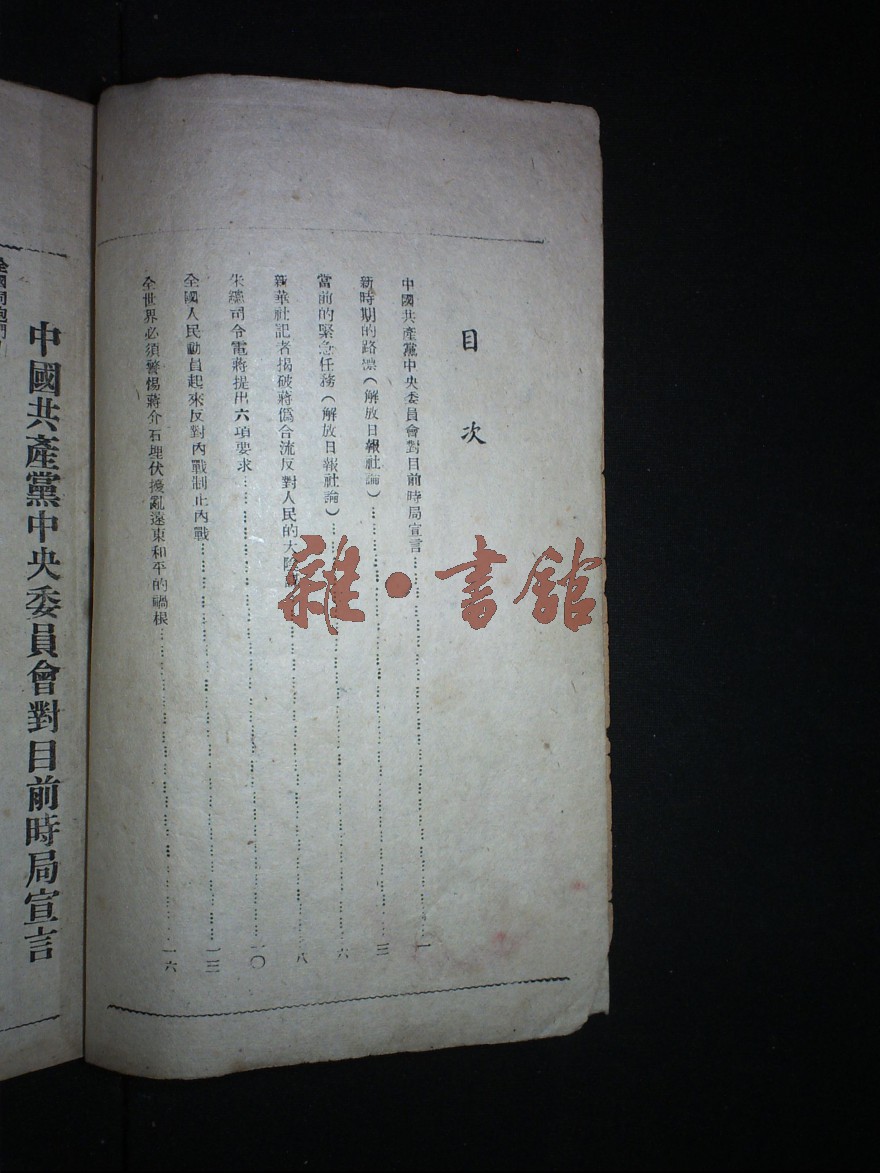 目次
中國共產黨中央委員會對目前時局宣言……一
新時期的路標(解放日報社論)……三
當前的緊急任務(解放日報社論)……六
新華社記者揭破蔣僞合流反對人民的大陰……八
朱總司令電蔣提出六項要求……一〇
全國人民動員起來反對內戰制止內戰……一三
全世界必須警惕蔣介石埋伏擾亂遠東和平的禍根……一六
中國共產黨中央委員會對目前時局宣言
全國同胞們
雜·書館